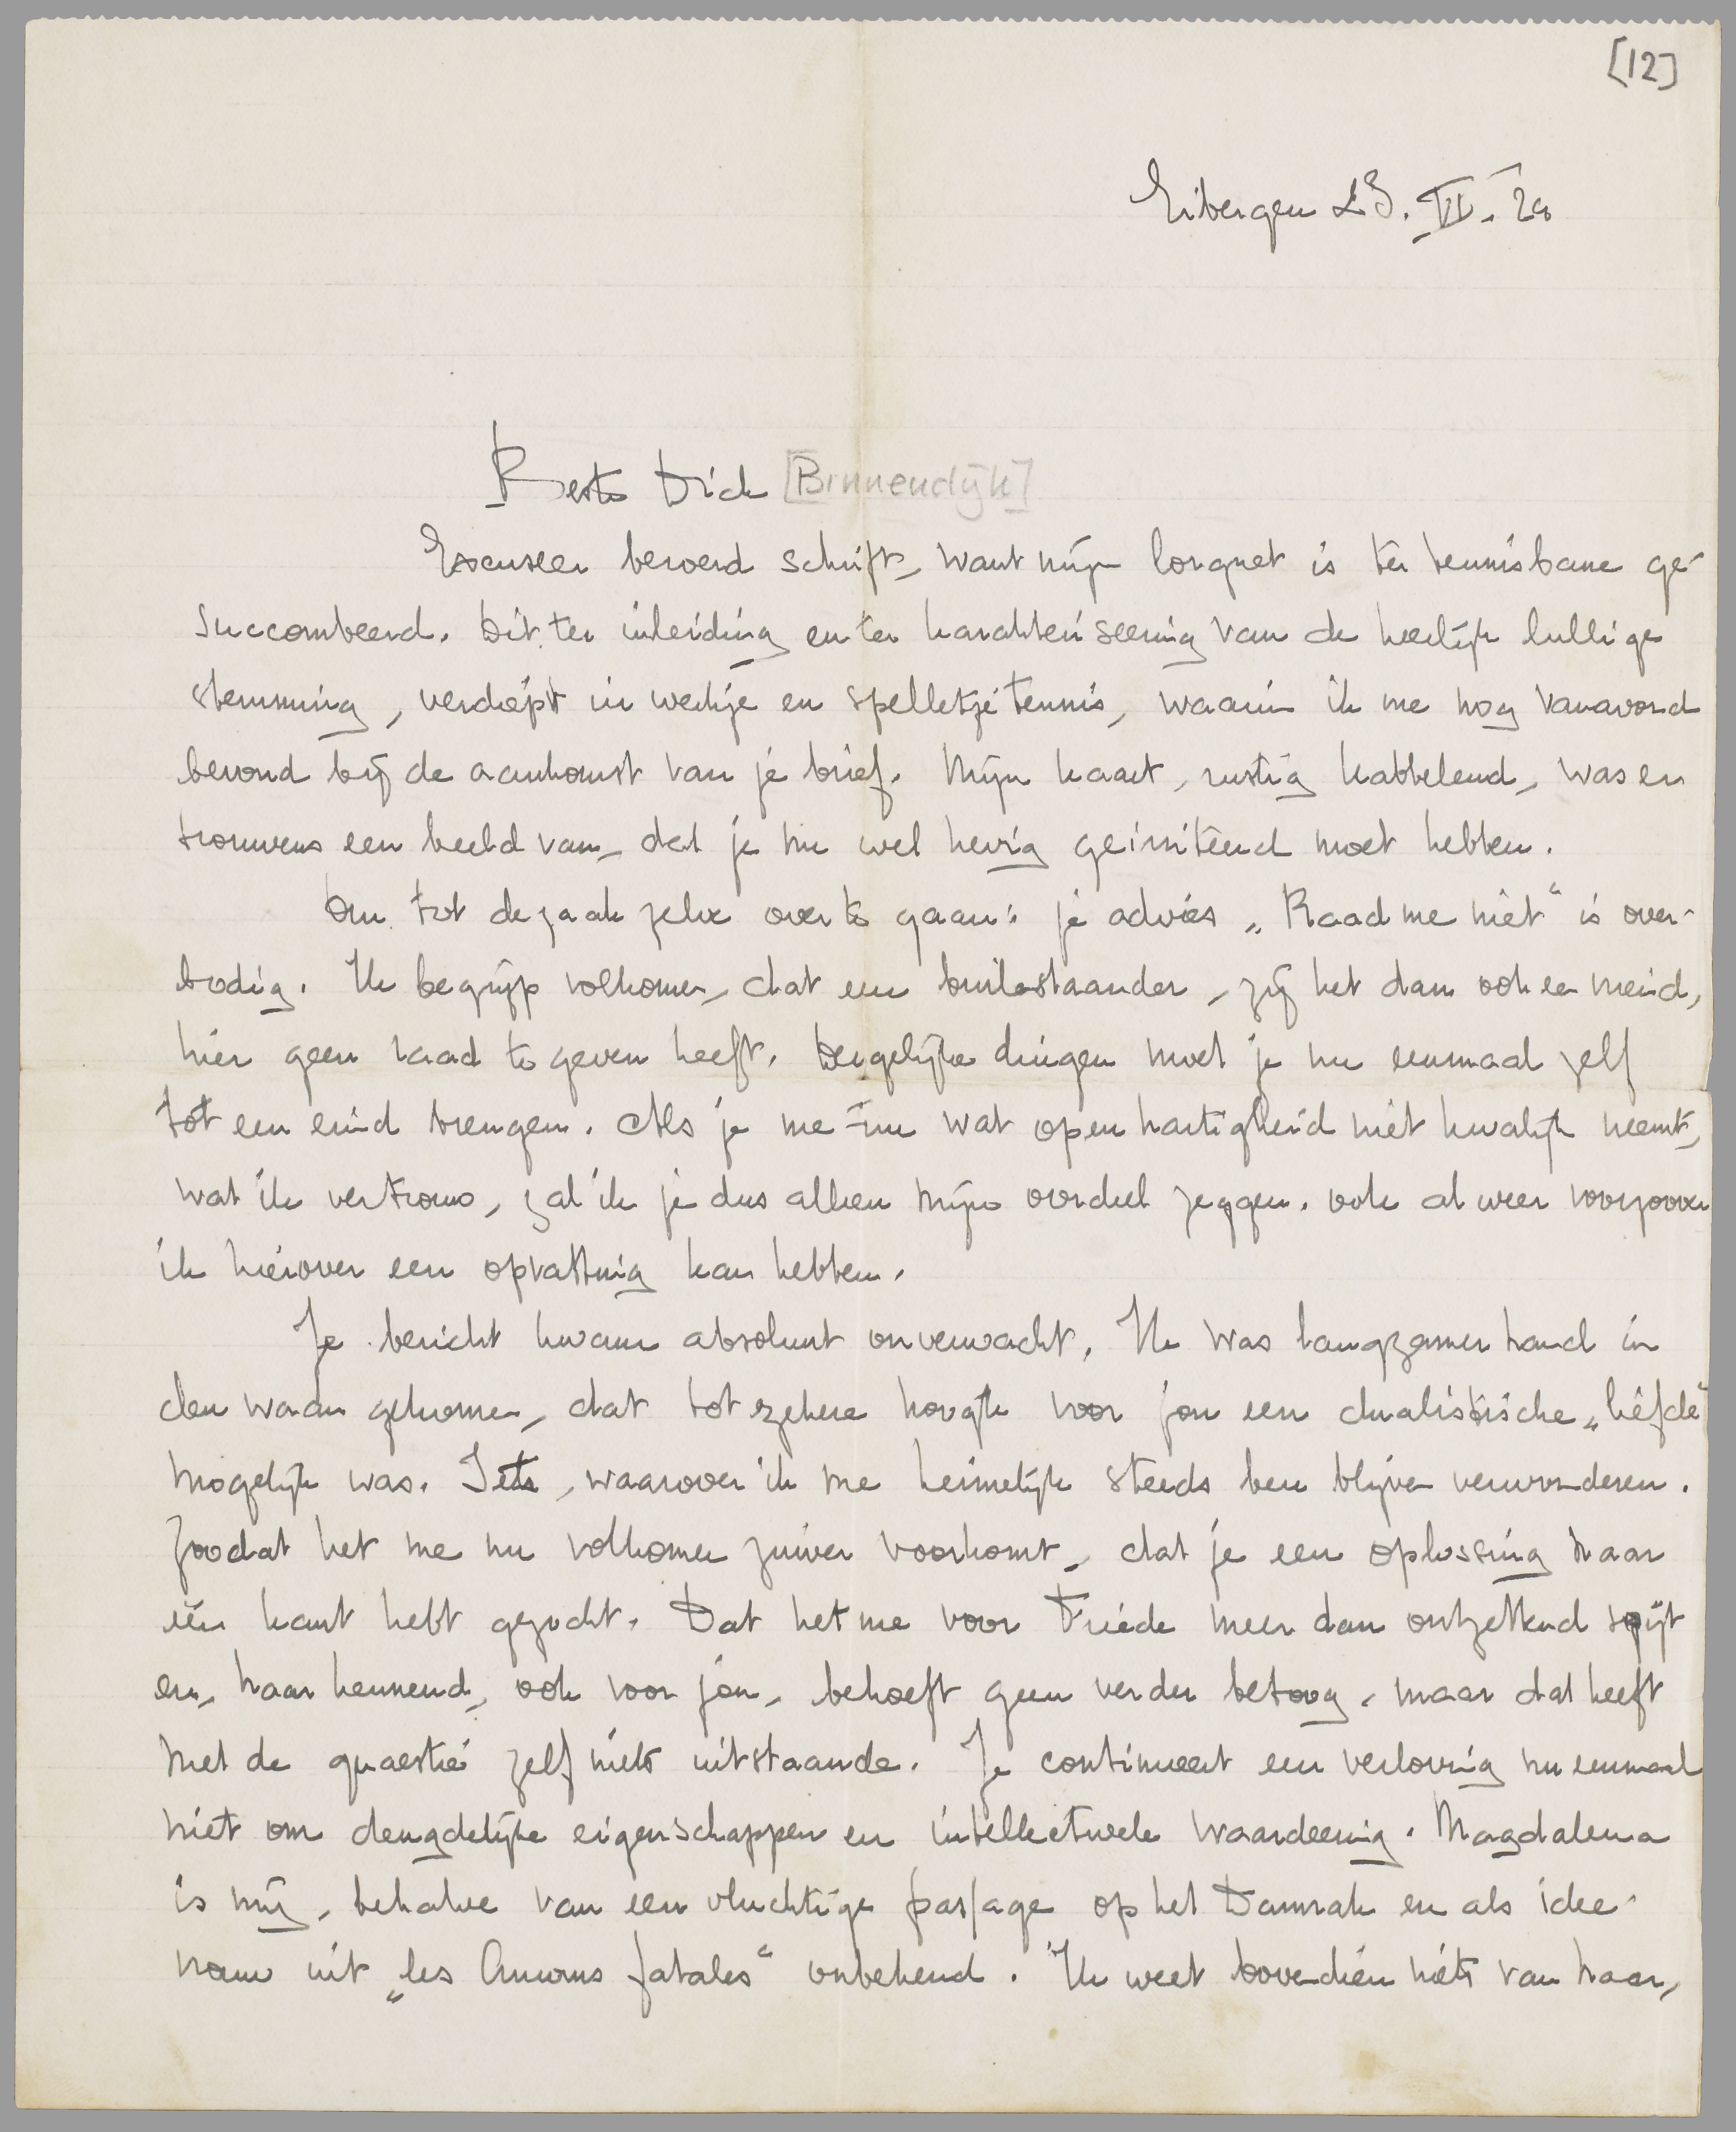 [12]
Eibergen 23. VI. 26
Beste Dick [Binnendijk]
Excuseer beroerd schrift, want mijn lorgnet is ter tennisbane ge-
succombeerd. Dit ter inleiding en ter karakteriseering van de heerlijk lullige
stemming, verdiept in werkje en spelletje tennis, waarin ik me nog vanavond
bevond bij de aankomst van je brief. Mijn kaart, rustig kabbelend, was er
trouwens een beeld van, dat je nu wel hevig geïrriteerd moet hebben.
Om tot de zaak zelve over te gaan: je advies „Raad me niet“ is over-
bodig. Ik begrijp volkomen, dat een buitenstaander, zij het dan ook een vriend,
hier geen raad te geven heeft. Dergelijke dingen moet je nu eenmaal zelf
tot een eind brengen. Als je me nu wat openhartigheid niet kwalijk neemt,
wat ik vertrouw, zal ik je dus alleen mijn oordeel zeggen, ook al weer voorzoover
ik hierover een opvatting kan hebben.
Je bericht kwam absoluut onverwacht. Ik was langzamerhand in
den waan gekomen, dat tot zekere hoogte voor jou een dualistische „liefde“
mogelijk was. Iets, waarover ik me heimelijk steeds ben blijven verwonderen.
Zoodat het me nu volkomen zuiver voorkomt, dat je een oplossing naar
één kant hebt gezocht. Dat het me voor Friede meer dan ontzettend spijt
en, haar kennend, ook voor jou, behoeft geen verder betoog, maar dat heeft
met de quaestie zelf niets uitstaande. Je continueert een verloving nu eenmaal
niet om deugdelijke eigenschappen en intellectueele waardeering. Magdalena
is mij, behalve van een vluchtige passage op het Damrak en als idee
vrouw uit „les Amours fatales“ onbekend. Ik weet bovendien niets van haar,